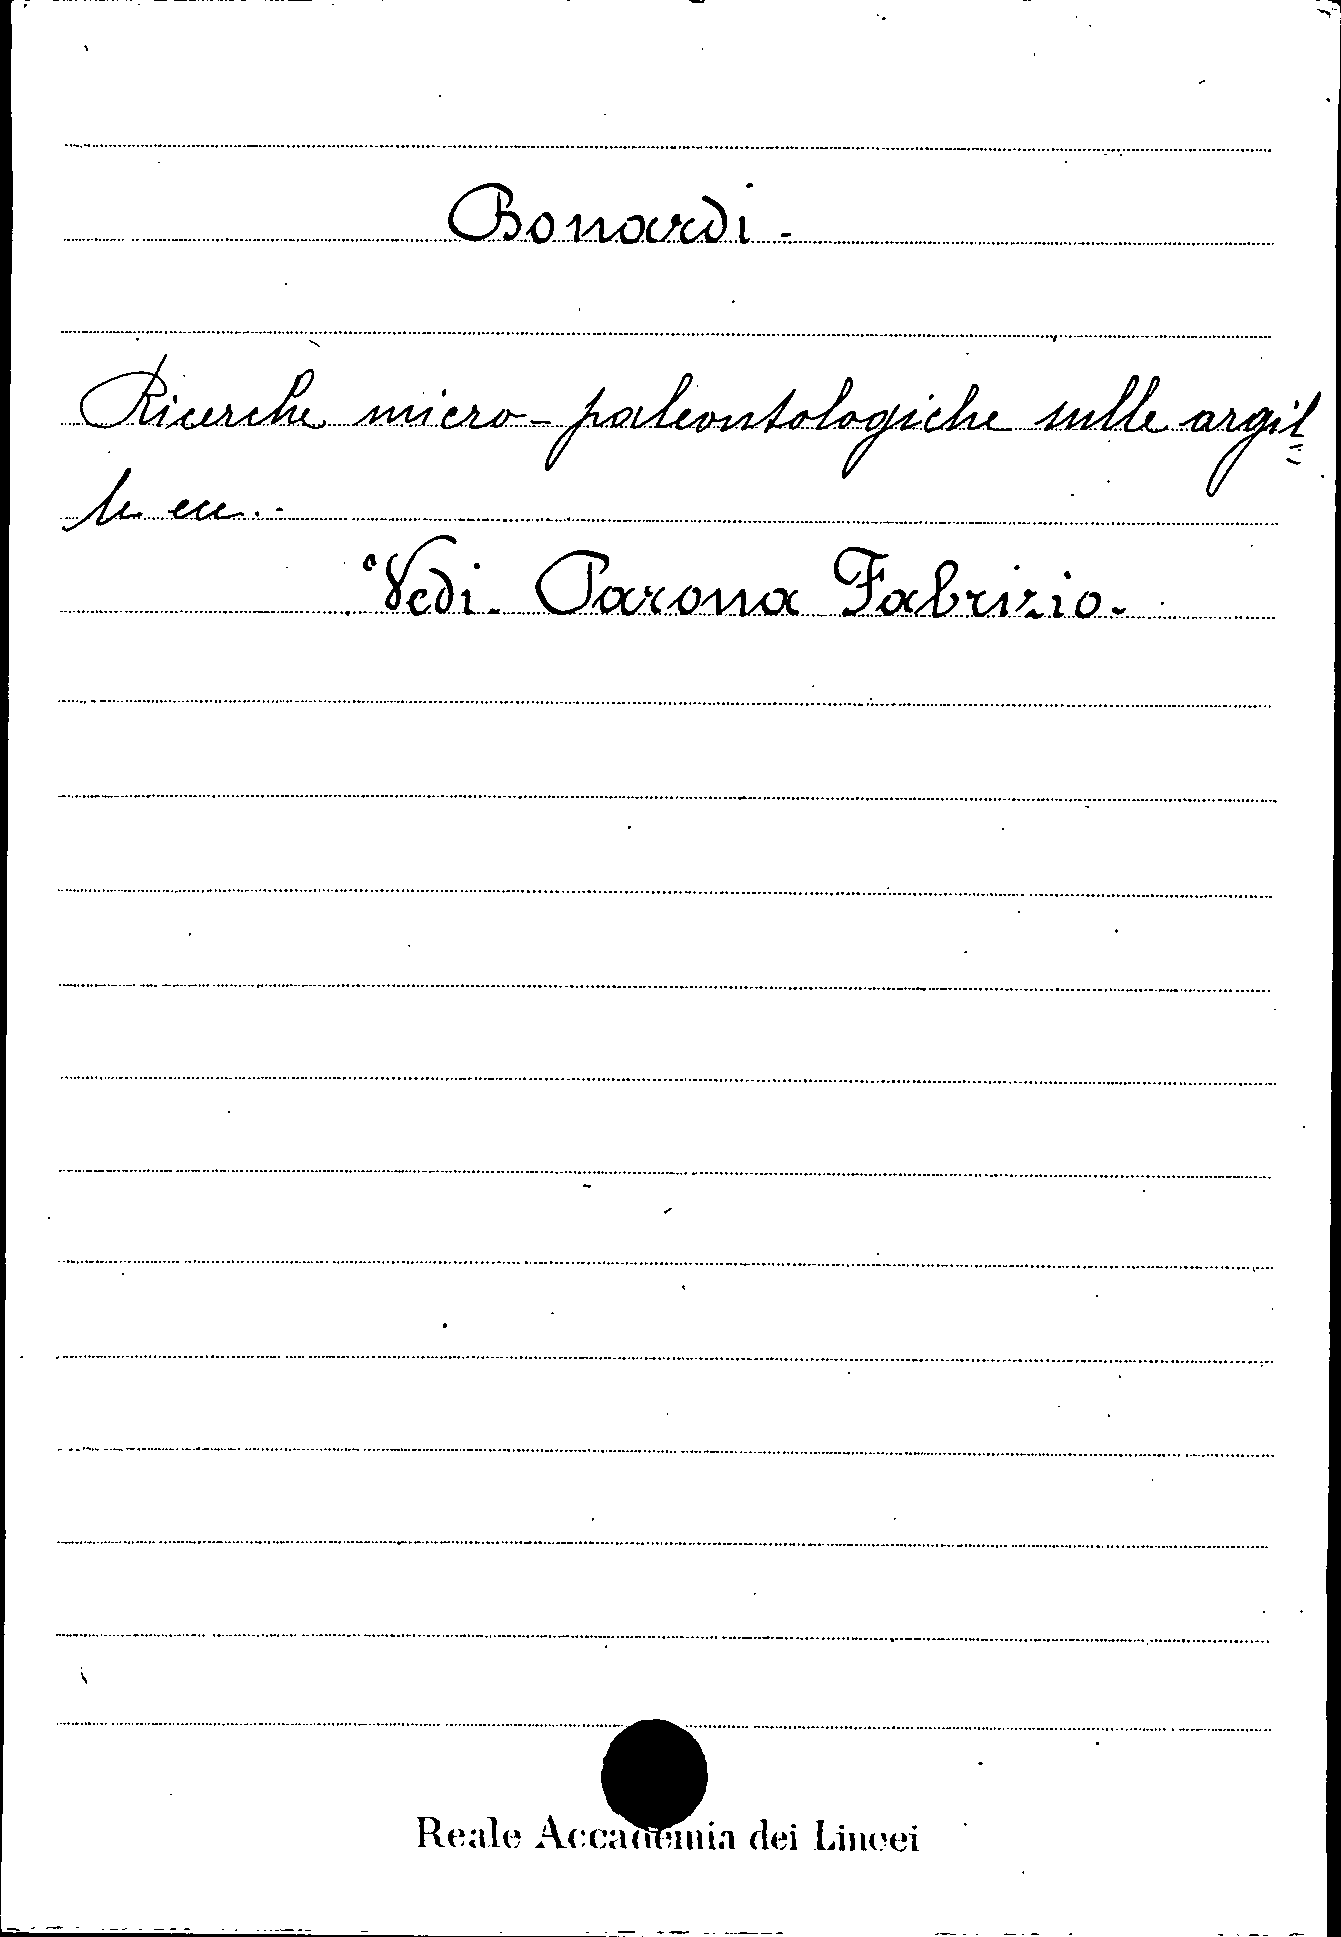 Bonardi -
Ricerche micro-paleontologiche sulle argil=
le ecc..
Vedi. Parona Fabrizio.
Reale Accademia dei Lincei